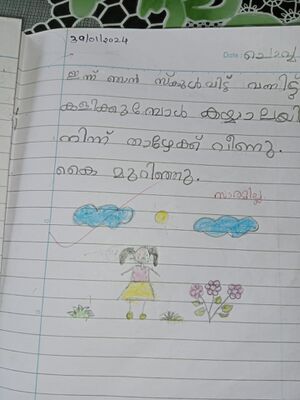 30/01/2024
Date: ചൊവ്വ
ഇന്ന് ഞാൻ സ്കൂൾ വിട്ട് വന്നിട്ട്
കളിക്കുമ്പോൾ കയ്യാലയി
നിന്ന് താഴേക്ക് വീണു.
കൈ മുറിഞ്ഞു.
സാരമില്ല